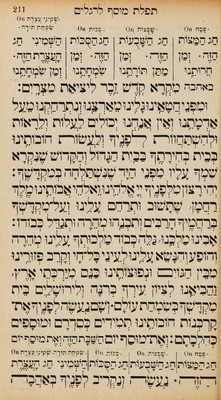 211 תפלת מוסף לרגלים
On פסח: On שבעות: On סכות: On שמיני עצרת
ושמחת תורה:
חַג הַמַּצּוֹת חַג הַשָּׁבֻעוֹת חַג הַסֻּכּוֹת הַשְּׁמִינִי חַג
הַזֶּה. זְמַן הַזֶּה. זְמַן הַזֶּה. זְמַן הָעֲצֶרֶת הַזֶּה.
חֵרוּתֵנוּ מַתַּן תּוֹרָתֵנוּ שִׂמְחָתֵנוּ זְמַן שִׂמְחָתֵנוּ
באהבה מִקְרָא קֹדֶשׁ זֵכֶר לִיצִיאַת מִצְרָיִם:
וּמִפְּנֵי חֲטָאֵינוּ גָּלִינוּ מֵאַרְצֵנוּ וְנִתְרַחַקְנוּ מֵעַל
אַדְמָתֵנוּ וְאֵין אֲנַחְנוּ יְכוֹלִים לַעֲלוֹת וְלֵרָאוֹת
וּלְהִשְׁתַּחֲווֹת לְפָנֶיךָ וְלַעֲשׂוֹת חוֹבוֹתֵינוּ
בְּבֵית בְּחִירָתֶךָ בַּבַּיִת הַגָּדוֹל וְהַקָּדוֹשׁ שֶׁנִּקְרָא
שִׁמְךָ עָלָיו מִפְּנֵי הַיָּד שֶׁנִּשְׁתַּלְּחָה בְּמִקְדָּשֶׁךָ:
יְהִי רָצוֹן מִלְּפָנֶיךָ יְיָ אֱלֹהֵינוּ וֵאלֹהֵי אֲבוֹתֵינוּ מֶלֶךְ
רַחֲמָן שֶׁתָּשׁוּב וּתְרַחֵם עָלֵינוּ וְעַל־מִקְדָּשְׁךָ
בְּרַחֲמֶיךָ הָרַבִּים וְתִבְנֵהוּ מְהֵרָה וּתְגַדֵּל כְּבוֹדוֹ:
אָבִינוּ מַלְכֵּנוּ. גַּלֵּה כְּבוֹד מַלְכוּתְךָ עָלֵינוּ מְהֵרָה
וְהוֹפַע וְהִנָּשֵׂא עָלֵינוּ לְעֵינֵי כָּל־חָי. וְקָרֵב פְּזוּרֵינוּ
מִבֵּין הַגּוֹיִם וּנְפוּצוֹתֵינוּ כַּנֵּס מִיַּרְכְּתֵי אָרֶץ.
וַהֲבִיאֵנוּ לְצִיּוֹן עִירְךָ בְּרִנָּה וְלִירוּשָׁלַיִם בֵּית
מִקְדָּשְׁךָ בְּשִׂמְחַת עוֹלָם. וְשָׁם נַעֲשֶׂה לְפָנֶיךָ אֶת־
קָרְבְּנוֹת חוֹבוֹתֵינוּ תְּמִידִים כְּסִדְרָם וּמוּסָפִים
כְּהִלְכָתָם: וְאֶת־מוּסַף יוֹם הַשַּׁבָּת הַזֶּה וְאֶת מוּסַף יוֹם